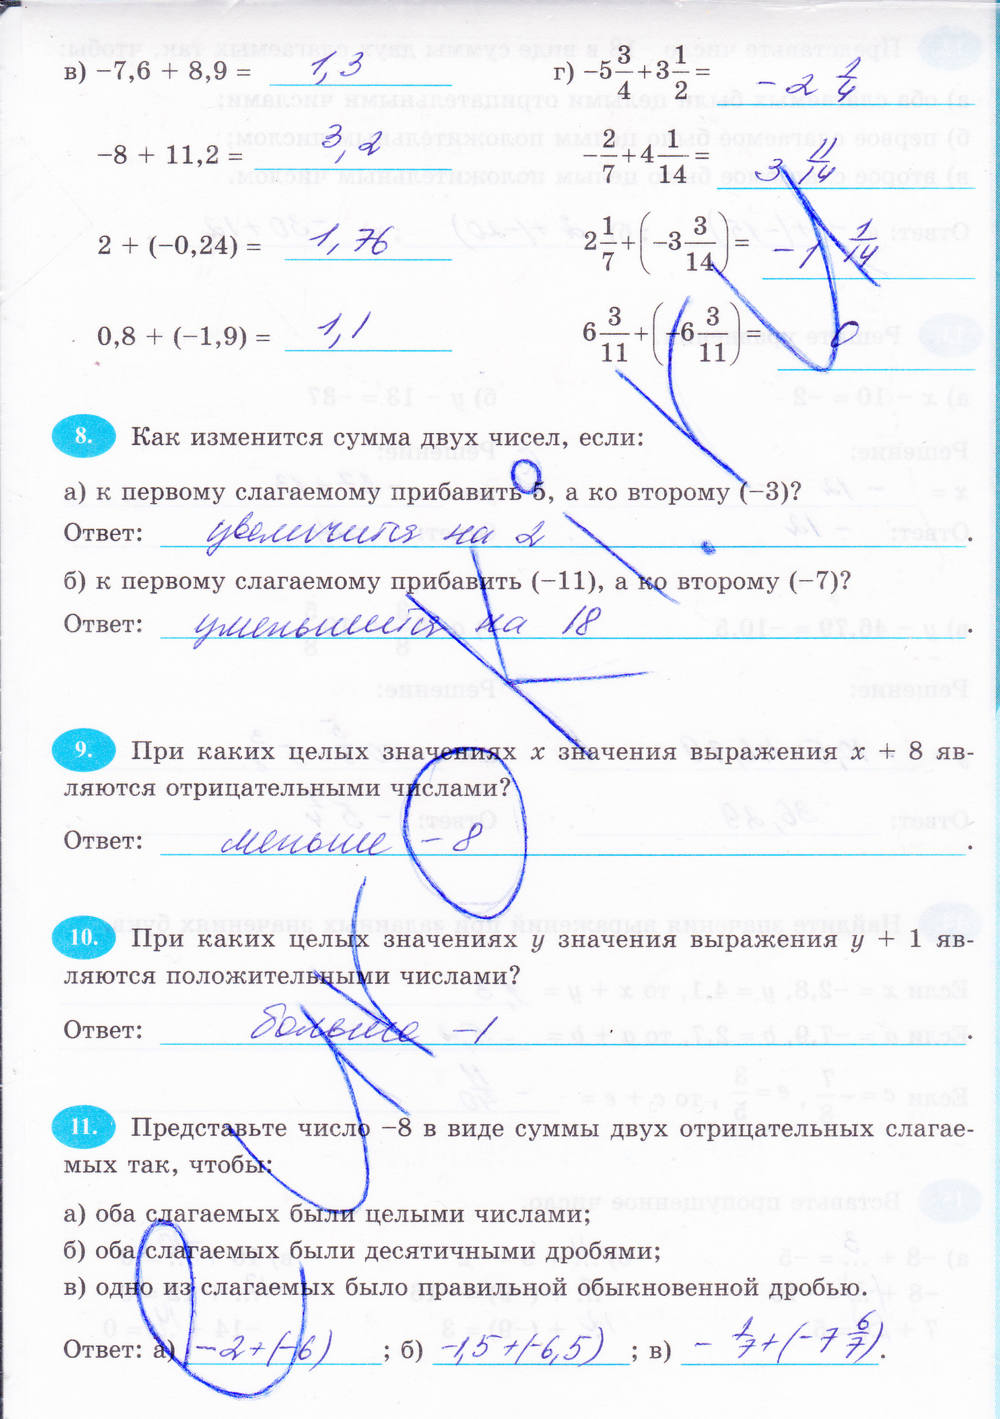 в) −7,6 + 8,9 = 1,3
г) −5 3/4 + 3 1/2 = −2 1/4
−8 + 11,2 = 3,2
−2/7 + 4 1/14 = 3 11/14
2 + (−0,24) = 1,76
2 1/7 + (−3 3/14) = −1 1/14
0,8 + (−1,9) = 1,1
6 3/11 + (−6 3/11) = 0
8. Как изменится сумма двух чисел, если:
а) к первому слагаемому прибавить 5, а ко второму (−3)?
Ответ: увеличится на 2.
б) к первому слагаемому прибавить (−11), а ко второму (−7)?
Ответ: уменьшится на 18.
9. При каких целых значениях x значения выражения x + 8 яв-
ляются отрицательными числами?
Ответ: меньше −8.
10. При каких целых значениях y значения выражения y + 1 яв-
ляются положительными числами?
Ответ: больше −1.
11. Представьте число −8 в виде суммы двух отрицательных слагае-
мых так, чтобы:
а) оба слагаемых были целыми числами;
б) оба слагаемых были десятичными дробями;
в) одно из слагаемых было правильной обыкновенной дробью.
Ответ: а) −2+(−6); б) −1,5+(−6,5); в) −1/7+(−7 6/7).